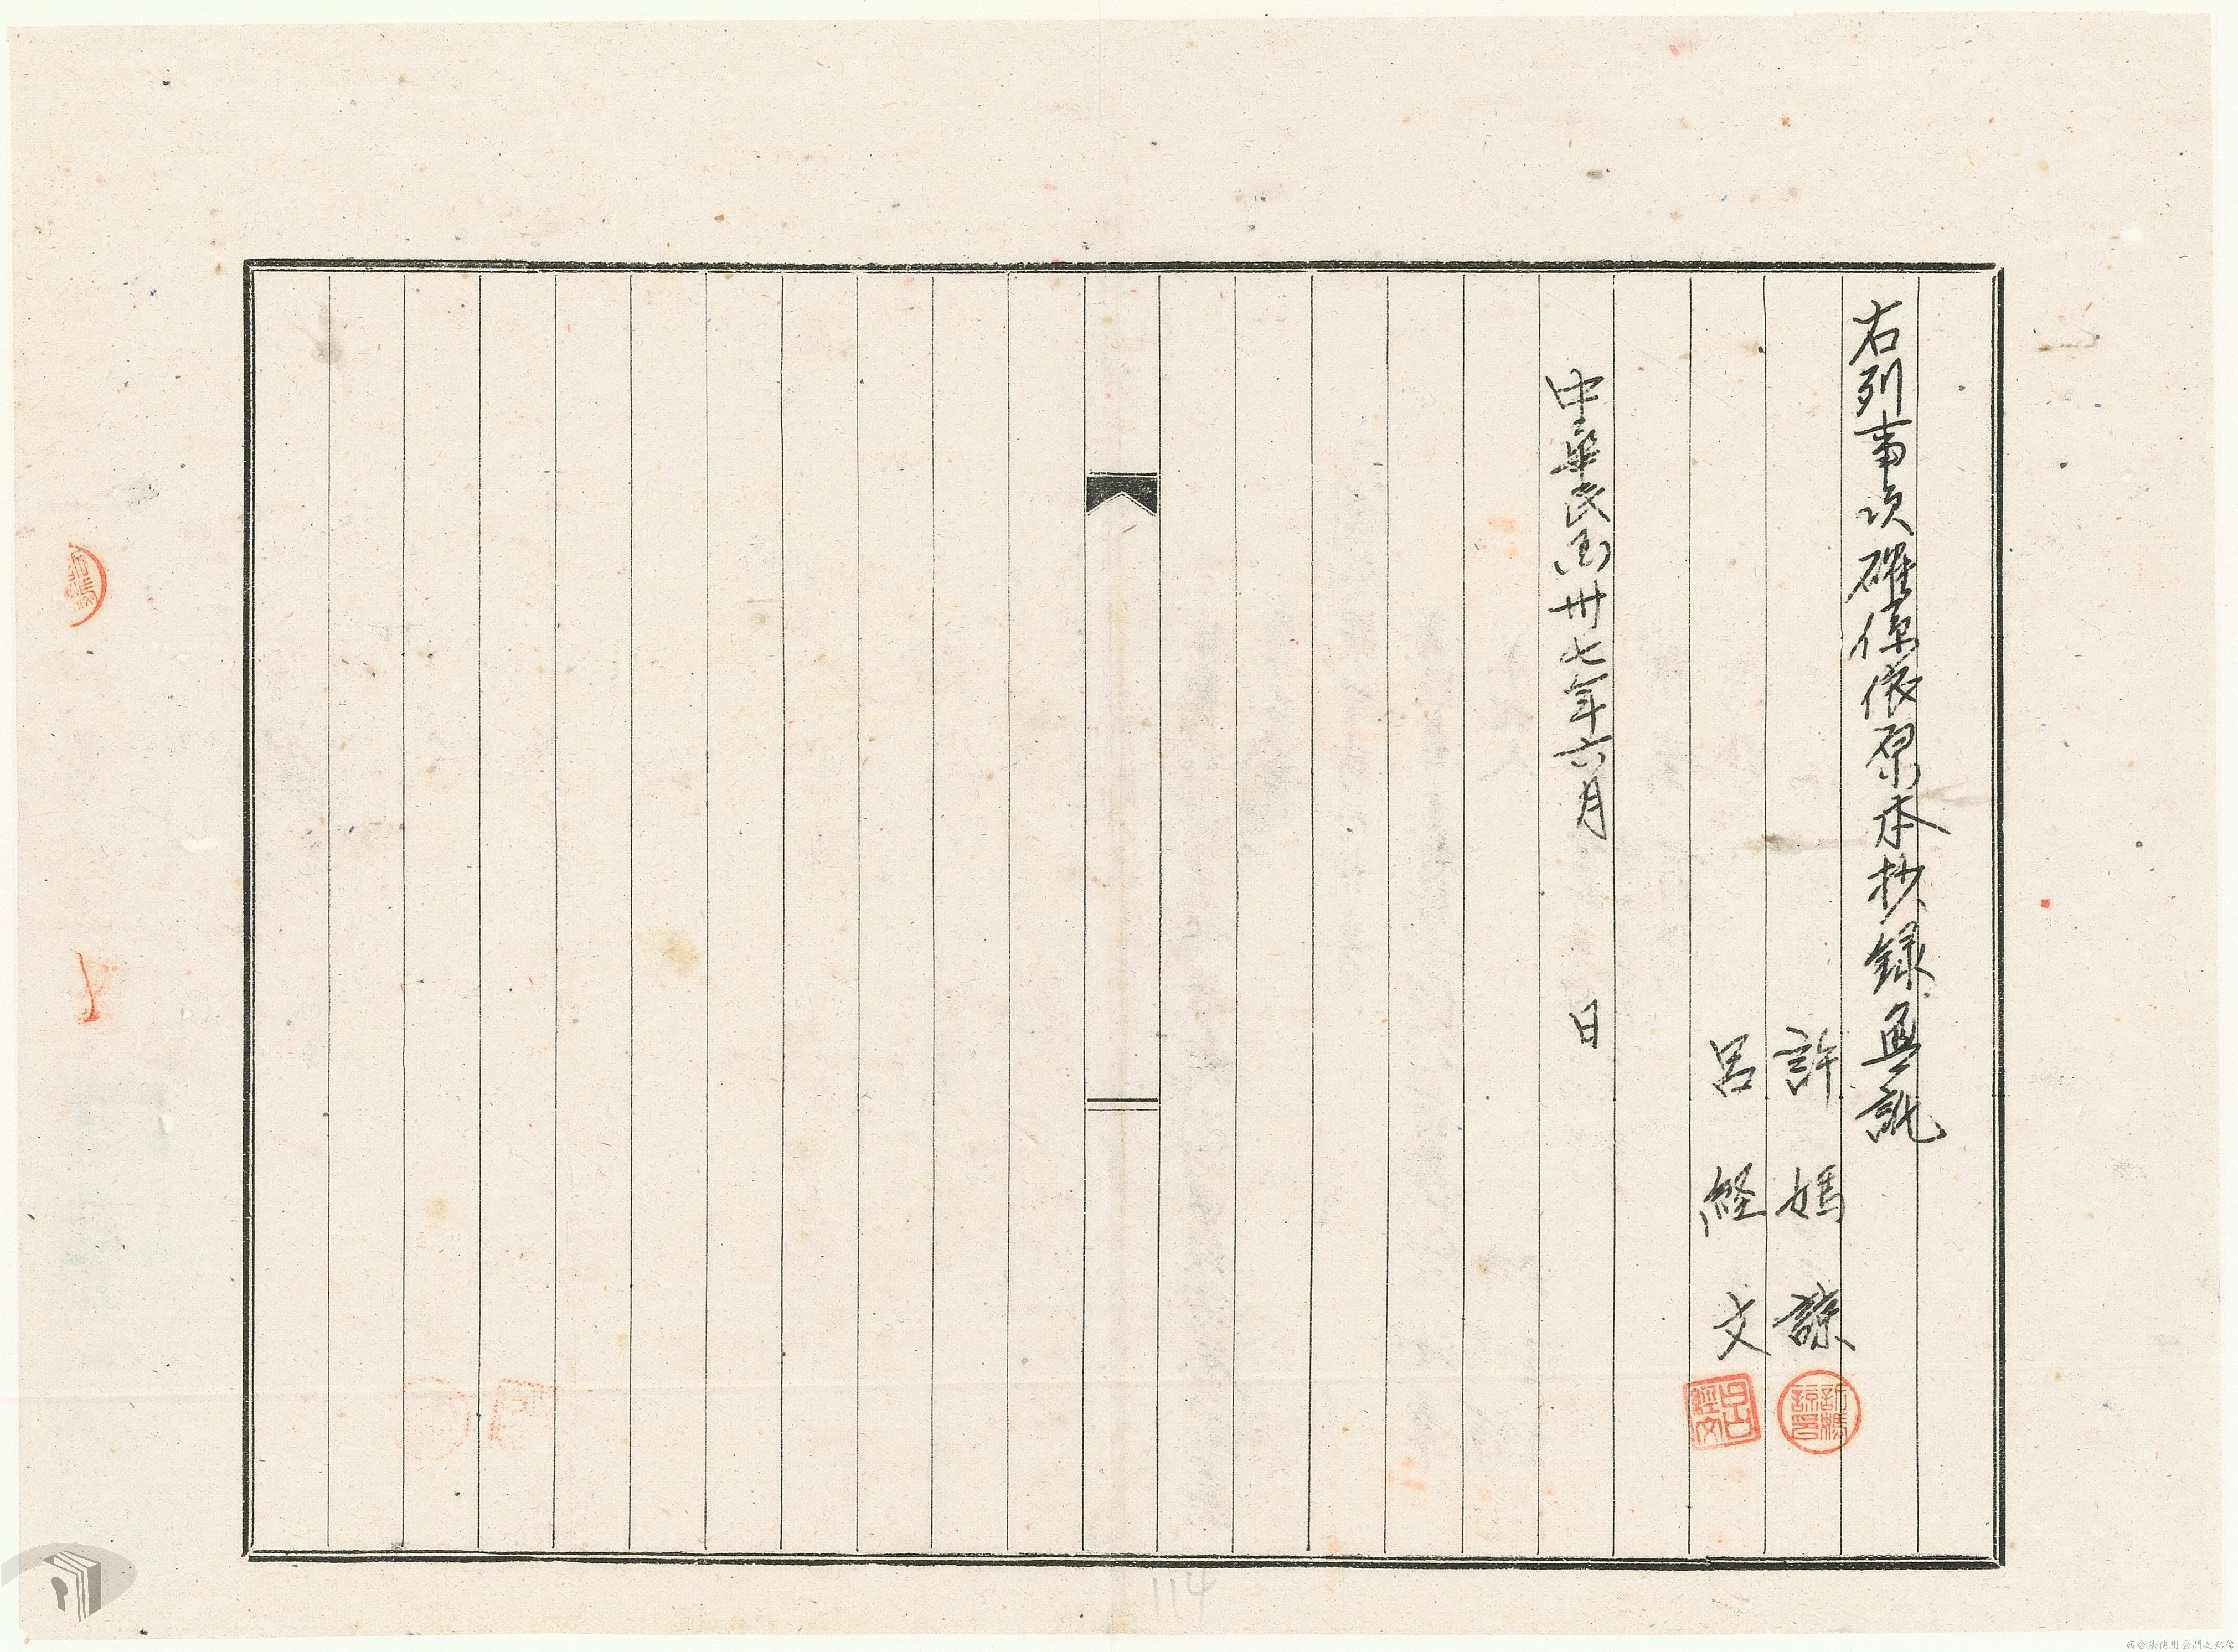 右列事項確係依原本抄録無訛
許媽諒
許媽諒印
呂経文
呂經文
中華民国卅七年六月　日
114
請合法使用公開之影像